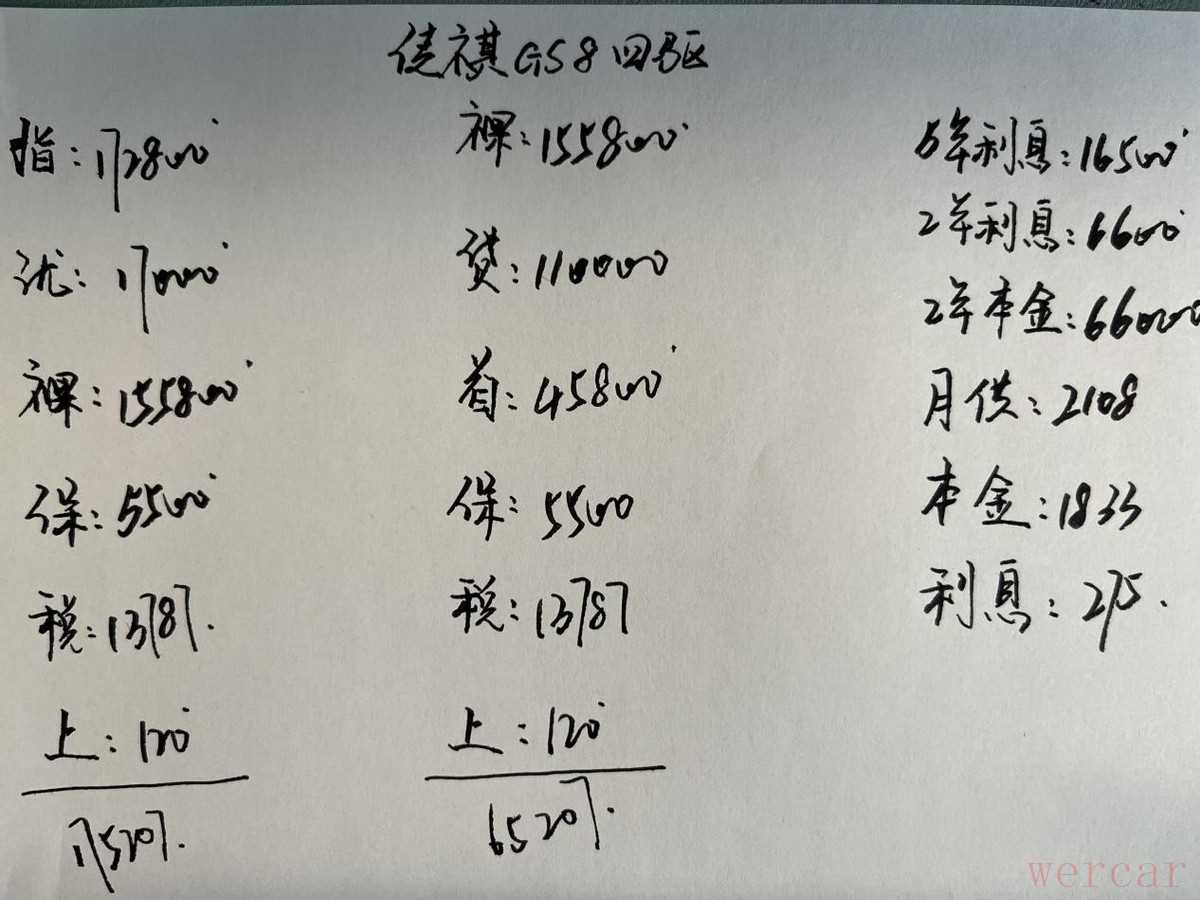 传祺GS8四驱
指:172800
优:17000
裸:155800
保:5500
税:13787.
上:120
175207.
裸:155800
贷:110000
首:45800
保:5500
税:13787
上:120
65207.
5年利息:16500
2年利息:6600
2年本金:66000
月供:2108
本金:1833
利息:275.
wercar